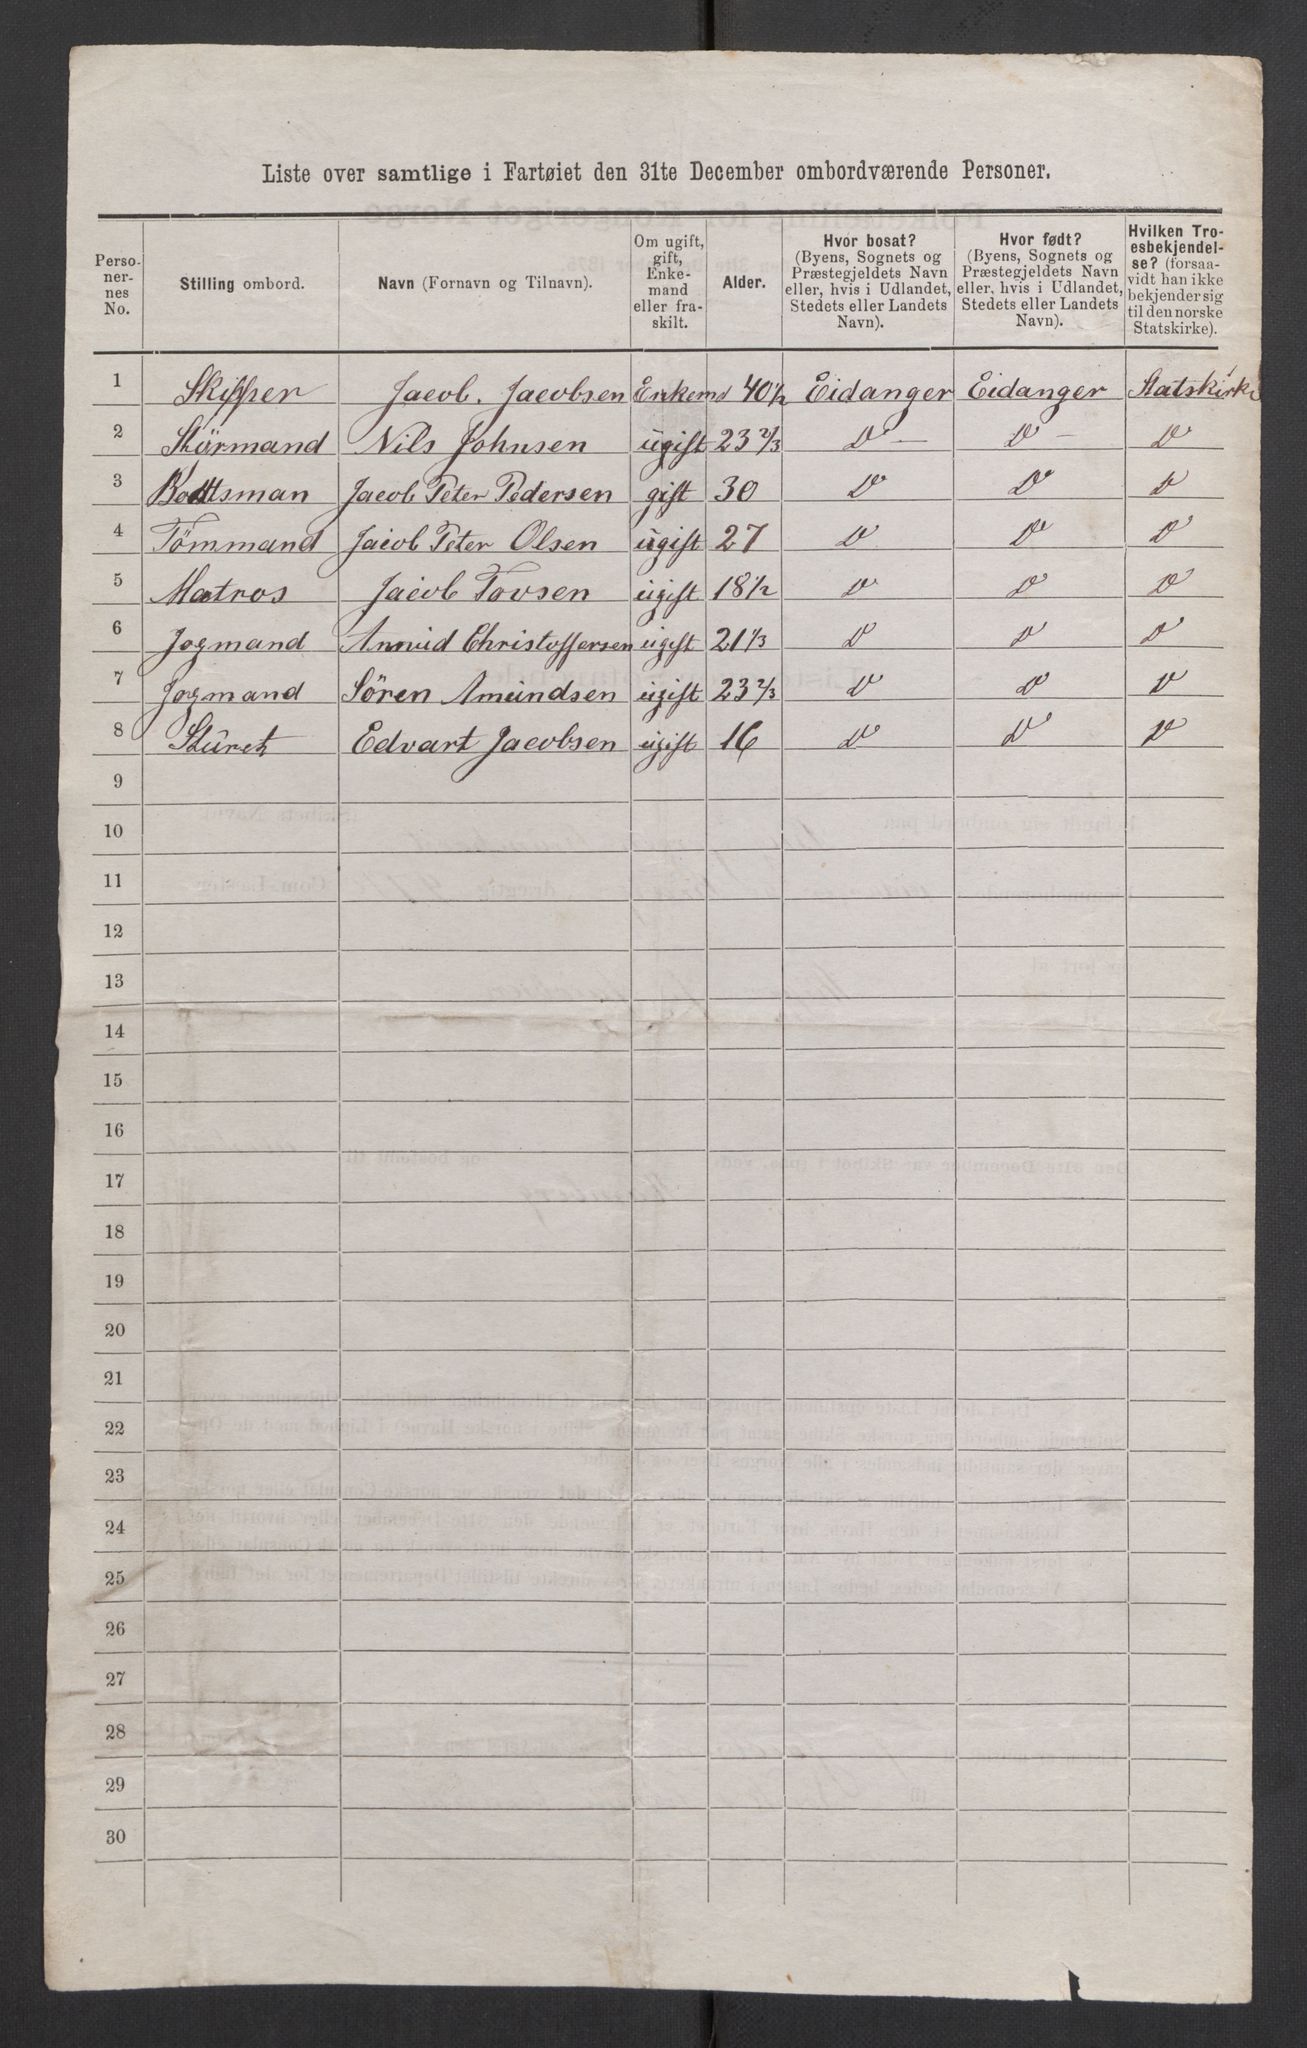 Liste over samtlige i Fartøiet den 31te December ombordværende Personer.
Perso-ner-nes No. | Stilling ombord. | Navn (Fornavn og Tilnavn). | Om ugift, gift, Enke-mand eller fra-skilt. | Alder. | Hvor bosat? (Byens, Sognets og Præstegjeldets Navn eller, hvis i Udlandet, Stedets eller Landets Navn). | Hvor født? (Byens, Sognets og Præstegjeldets Navn eller, hvis i Udlandet, Stedets eller Landets Navn). | Hvilken Tro-esbekjendel-se? (forsaa-vidt han ikke bekjender sig til den norske Statskirke).
1 Skipper Jacob. Jacobsen Enkemd 40 1/2 Eidanger Eidanger Statskirke
2 Störmand Nils Johnsen ugift 23 2/3 D — D — D
3 Bodtsman Jacob Peter Pedersen gift 30 D D D
4 Tömmand Jacob Peter Olsen ugift 27 D D D
5 Matros Jacob Tovsen ugift 18 1/2 D D D
6 Jogmand Amud Christoffersen ugift 21 1/3 D D D
7 Jogmand Sören Amundsen ugift 23 2/3 D D D
8 Stüret Edvart Jacobsen ugift 16 D D D
9
10
11
12
13
14
15
16
17
18
19
20
21
22
23
24
25
26
27
28
29
30